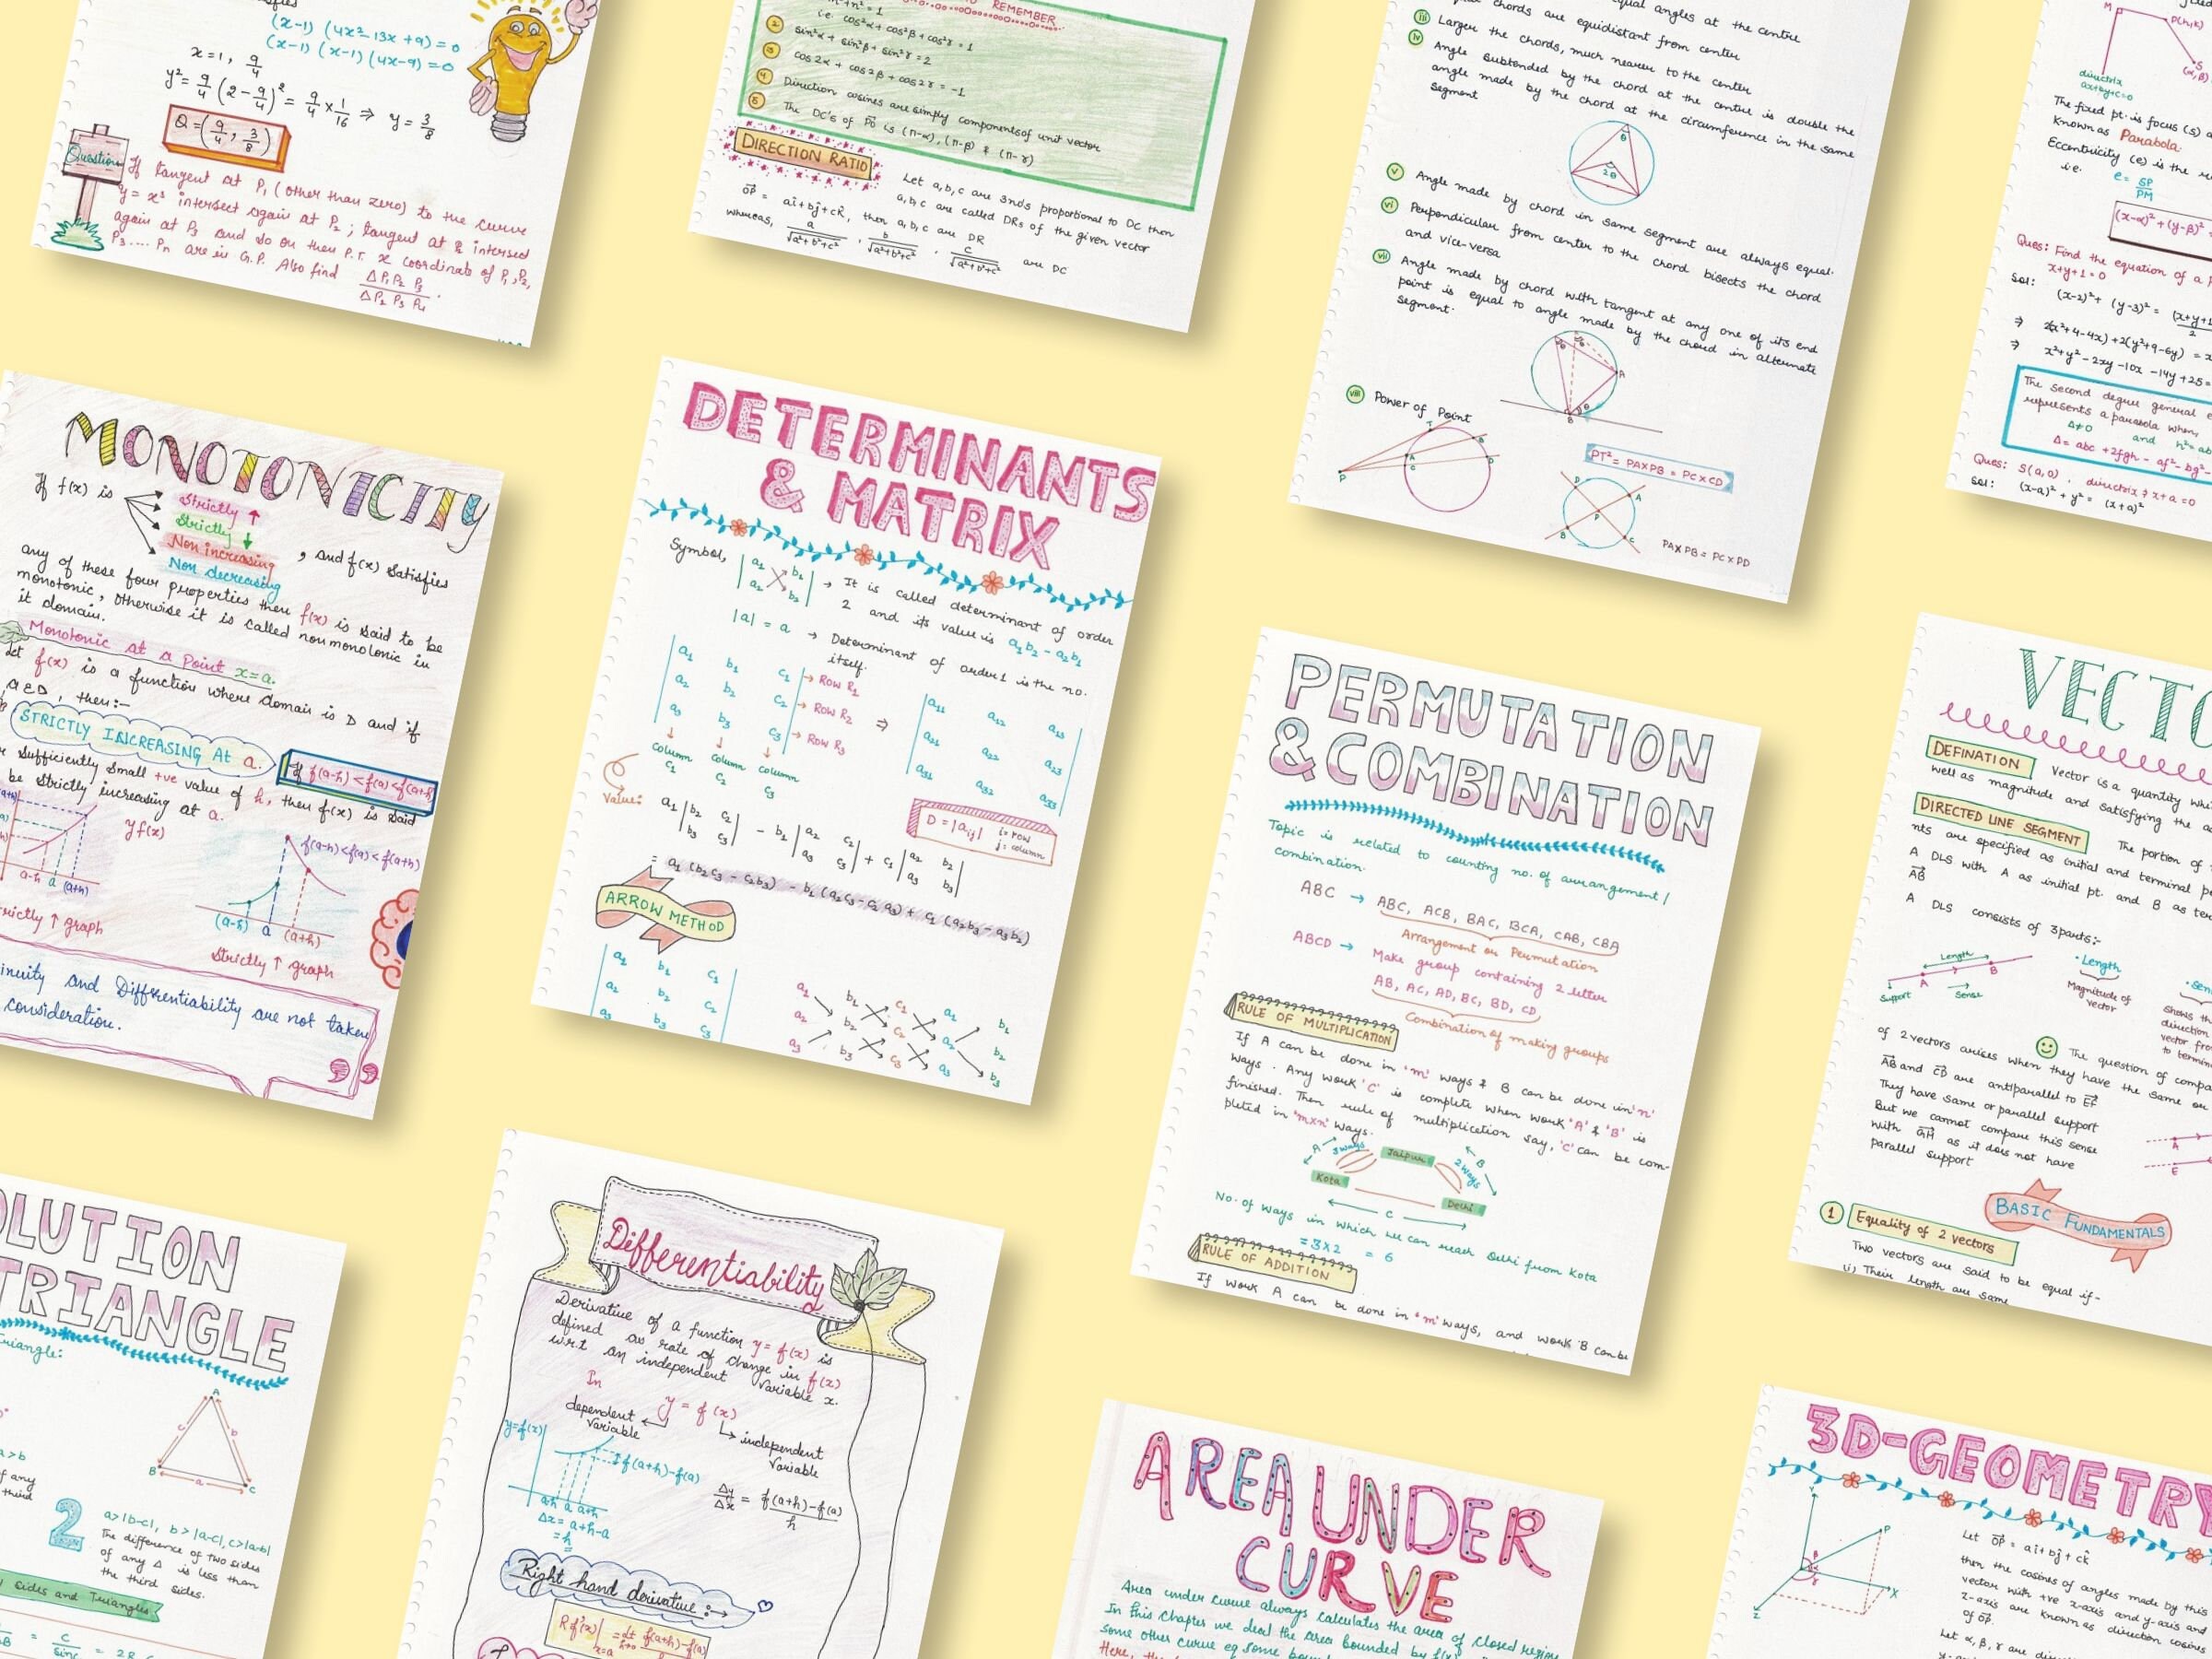 (x-1) (4x² 13x + 9) = 0
(x-1) (x-1) (4x-9) = 0
x = 1, 9/4
y² = 9/4 (2 - 9/4)² = 9/4 × 1/16 ⇒ y = 3/8
Q = (9/4, 3/8)
Question
If tangent at P₁ (other than zero) to the curve
y = x³ intersect again at P₂; tangent at P₂ intersect
again at P₃ and so on then P.T. x coordinate of P₁, P₂,
P₃.... Pn are in G.P. Also find ΔP₁P₂P₃ / ΔP₂P₃P₄.
REMEMBER
i.e. cos²α + cos²β + cos²γ = 1
2 sin²α + sin²β + sin²γ = 2
3 cos 2α + cos 2β + cos 2γ = -1
4 Direction cosines are simply components of unit vector
5 The DC's of PO is (π-α), (π-β) & (π-γ)
DIRECTION RATIO
Let a, b, c are 3 nos proportional to DC then
a, b, c are called DRs of the given vector
OP = aî + bĵ + ck̂, then a, b, c are DR
whereas, a/√a²+b²+c², b/√a²+b²+c², c/√a²+b²+c² are DC
equal angles at the centre
chords are equidistant from center
iii Larger the chords, much nearer to the center
iv Angle subtended by the chord at the centre is double the
angle made by the chord at the circumference in the same
segment
θ
2θ
v Angle made by chord in same segment are always equal.
vi Perpendicular from center to the chord bisects the chord
and vice-versa
vii Angle made by chord with tangent at any one of its end
point is equal to angle made by the chord in alternate
segment.
viii Power of Point
PT² = PA×PB = PC×CD
PA×PB = PC×PD
M
P(h,k)
S
(α,β)
directrix
ax+by+c=0
The fixed pt. is focus (s)
known as Parabola.
Eccentricity (e) is the
i.e. e = SP/PM
(x-α)² + (y-β)² =
Ques: Find the equation of a
x+y+1=0
Sol: (x-2)² + (y-3)² =
⇒ 2(x²+4-4x) + 2(y²+9-6y) =
⇒ x²+y²-2xy-10x-14y+25=
The second degree general
represents a parabola when,
Δ≠0 and h²=ab
Δ = abc + 2fgh - af² - bg²-
Ques: S(a,0), directrix ⇒ x+a=0
Sol: (x-a)² + y² = (x+a)²
MONOTONICITY
If f(x) is
Strictly ↑
Strictly ↓
Non increasing
Non decreasing
, and f(x) satisfies
any of these four properties then f(x) is said to be
monotonic, otherwise it is called non monotonic in
it domain.
Monotonic at a Point x=a.
Let f(x) is a function where domain is D and if
a∈D, then:-
STRICTLY INCREASING At a.
If f(a-h) < f(a) < f(a+h)
Sufficiently small +ve value of h, then f(x) is said
be strictly increasing at a.
y f(x)
a-h a (a+h)
f(a-h)<f(a)<f(a+h)
(a-h) a (a+h)
Strictly ↑ graph
and Differentiability are not taken
consideration.
DETERMINANTS
& MATRIX
Symbol, |a₁ b₁ a₂ b₂| → It is called determinant of order
2 and its value is a₁b₂ - a₂b₁
|a| = a → Determinant of order 1 is the no.
itself.
a₁ b₁ c₁ → Row R₁
a₂ b₂ c₂ → Row R₂ ⇒
a₃ b₃ c₃ → Row R₃
a₁₁ a₁₂ a₁₃
a₂₁ a₂₂ a₂₃
a₃₁ a₃₂ a₃₃
column column column
C₁ C₂ C₃
D = |aij| i = row
j = column
Value:
a₁ |b₂ c₂ b₃ c₃| - b₁ |a₂ c₂ a₃ c₃| + c₁ |a₂ b₂ a₃ b₃|
= a₁ (b₂c₃ - c₂b₃) - b₁ (a₂c₃ - c₂a₃) + c₁ (a₂b₃ - a₃b₂)
ARROW METHOD
a₁ b₁ c₁
a₂ b₂ c₂
a₃ b₃ c₃
a₁ b₁ c₁ a₁ b₁
a₂ b₂ c₂ a₂ b₂
a₃ b₃ c₃ a₃ b₃
PERMUTATION
& COMBINATION
Topic is related to counting no. of arrangement /
combination.
ABC → ABC, ACB, BAC, BCA, CAB, CBA
Arrangement or Permutation
ABCD → Make group containing 2 letter
AB, AC, AD, BC, BD, CD
Combination of making groups
RULE OF MULTIPLICATION
If A can be done in 'm' ways & B can be done in 'n'
ways. Any work 'C' is complete when work 'A' & 'B' is
finished. Then rule of multiplication say, 'C' can be com-
pleted in 'm×n' ways.
A 3 ways Jaipur B 2 ways
Kota Delhi
C
No. of ways in which we can reach Delhi from Kota
= 3×2 = 6
RULE OF ADDITION
If work A can be done in 'm' ways, and work B can be
VECTO
DEFINATION Vector is a quantity
well as magnitude and satisfying the
DIRECTED LINE SEGMENT The portion of
nts are specified as initial and terminal
A DLS with A as initial pt. and B as
AB
A DLS consists of 3 parts:-
Length
A B
Support Sense
• Length
Magnitude of
vector
Shows
direction
vector
to
The question of
of 2 vectors arises when they have the same or
AB and CD are antiparallel to EF
They have same or parallel support
But we cannot compare this sense
with GH as it does not have
parallel support
BASIC FUNDAMENTALS
1 Equality of 2 vectors
Two vectors are said to be equal if-
(i) Their length are same
OLUTION
TRIANGLE
Triangle:
A
c b
B a C
a>b
of any
third
2
a>|b-c|, b>|a-c|, c>|a-b|
The difference of two sides
of any Δ is less than
the third sides.
sides and Triangles
c/sinC = 2R
Differentiability
Derivative of a function y = f(x) is
defined as rate of change in f(x)
w.r.t an independent variable x.
In y = f(x)
dependent
variable
independent
variable
y=f(x)
f(a+h)-f(a)
a-h a a+h
Δx = a+h-a
= h
Δy/Δx = f(a+h)-f(a)/h
Right hand derivative:→
Rf'(x) x=a = lt h→0 f(a+h)-f(a)
AREA UNDER
CURVE
Area under curve always calculates the area of closed region
In this chapter we deal the area bounded by
some other curve
Here,
3D-GEOMETRY
Y
P
X
Z
Let OP = aî + bĵ + ck̂
then the cosines of angles made by this
vector with +ve x-axis and y-axis and
z-axis are known as direction cosines
of OP
Let α, β, γ are